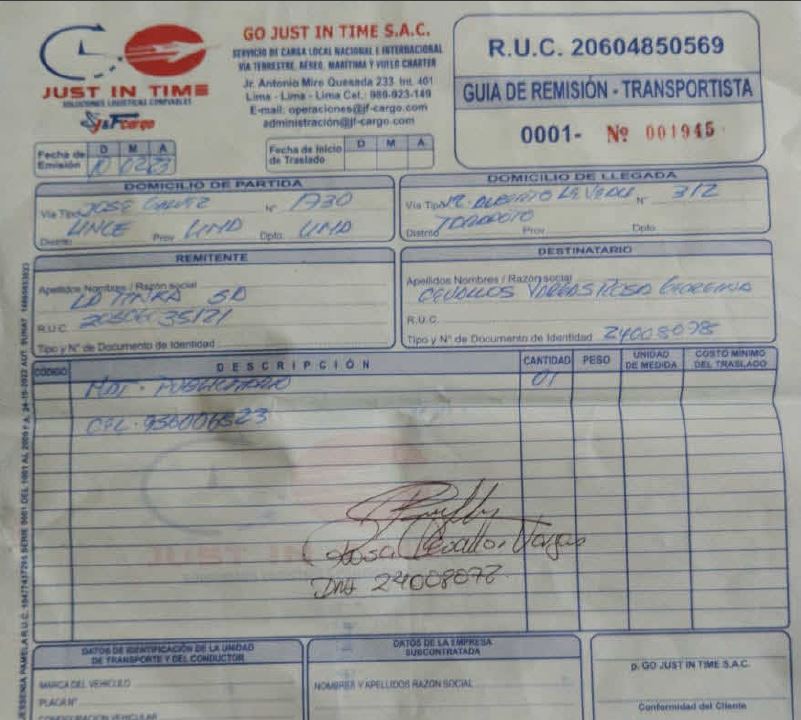 JUST IN TIME
SOLUCIONES LOGISTICAS CONFIABLES
J&F Cargo
GO JUST IN TIME S.A.C.
SERVICIO DE CARGA LOCAL NACIONAL E INTERNACIONAL
VIA TERRESTRE, AEREO, MARITIMA Y VUELO CHARTER
Jr. Antonio Miro Quesada 233 Int. 401
Lima - Lima - Lima Cel.: 989-923-149
E-mail: operaciones@jf-cargo.com
administración@jf-cargo.com
R.U.C. 20604850569
GUIA DE REMISIÓN - TRANSPORTISTA
0001- Nº 001945
Fecha de Emisión D M A
10 02 23
Fecha de Inicio de Traslado D M A
DOMICILIO DE PARTIDA
Vía Tipo JOSE GALVEZ N° 1730
LINCE LIMA LIMA
Distrito Prov. Dpto.
DOMICILIO DE LLEGADA
Vía Tipo N° 312
Distrito Prov. Dpto.
REMITENTE
Apellidos Nombres / Razón social
LA TINKA SA
R.U.C.
Tipo y N° de Documento de Identidad
DESTINATARIO
Apellidos Nombres / Razón social
CEVALLOS VARGAS ROSA GEORGINA
R.U.C.
Tipo y N° de Documento de Identidad 24008098
CÓDIGO DESCRIPCIÓN CANTIDAD PESO UNIDAD DE MEDIDA COSTO MÍNIMO DEL TRASLADO
MAT. PUBLICITARIO 01
CEL. 956006523
Rosa Cevallos Vargas
DNI 24008098
DATOS DE IDENTIFICACIÓN DE LA UNIDAD
DE TRANSPORTE Y DEL CONDUCTOR
MARCA DEL VEHICULO
PLACA N°
CONFIGURACIÓN VEHICULAR
DATOS DE LA EMPRESA
SUBCONTRATADA
NOMBRES Y APELLIDOS RAZON SOCIAL
p. GO JUST IN TIME S.A.C.
Conformidad del Cliente